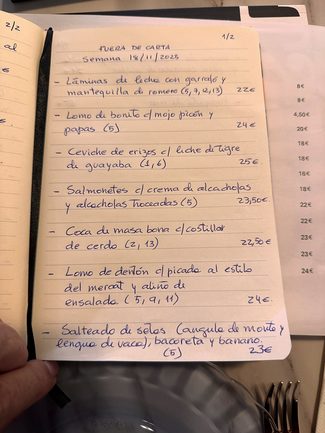 2/2
al
€
1/2
FUERA DE CARTA
Semana 18/11/2025
- Láminas de leche con garrofó y
mantequilla de romero (5, 7, 12, 13) 22€
- Lomo de bonito c/ mojo picón y
papas (5) 24€
- Ceviche de erizos c/ leche de tigre
de guayaba (1, 6) 25€
- Salmonetes c/ crema de alcachofas
y alcachofas troceadas (5) 23,50€
- Coca de masa bona c/ costillar
de cerdo (2, 13) 22,50€
- Lomo de dentón c/ picada al estilo
del mercat y aliño de
ensalada (5, 9, 11) 24€
- Salteado de setas (angula de monte y
lengua de vaca), bacoreta y banano.
(5) 23€
8€
8€
4,50€
20€
18€
18€
16€
18€
22€
22€
23€
23€
24€